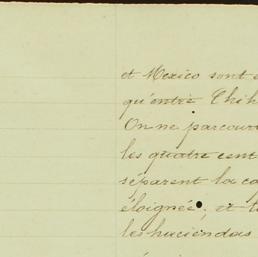 et Mexico sont
qu'entre Chih
On ne parcourt
les quatre cent
séparent la ca
éloignée; et t
les haciendas